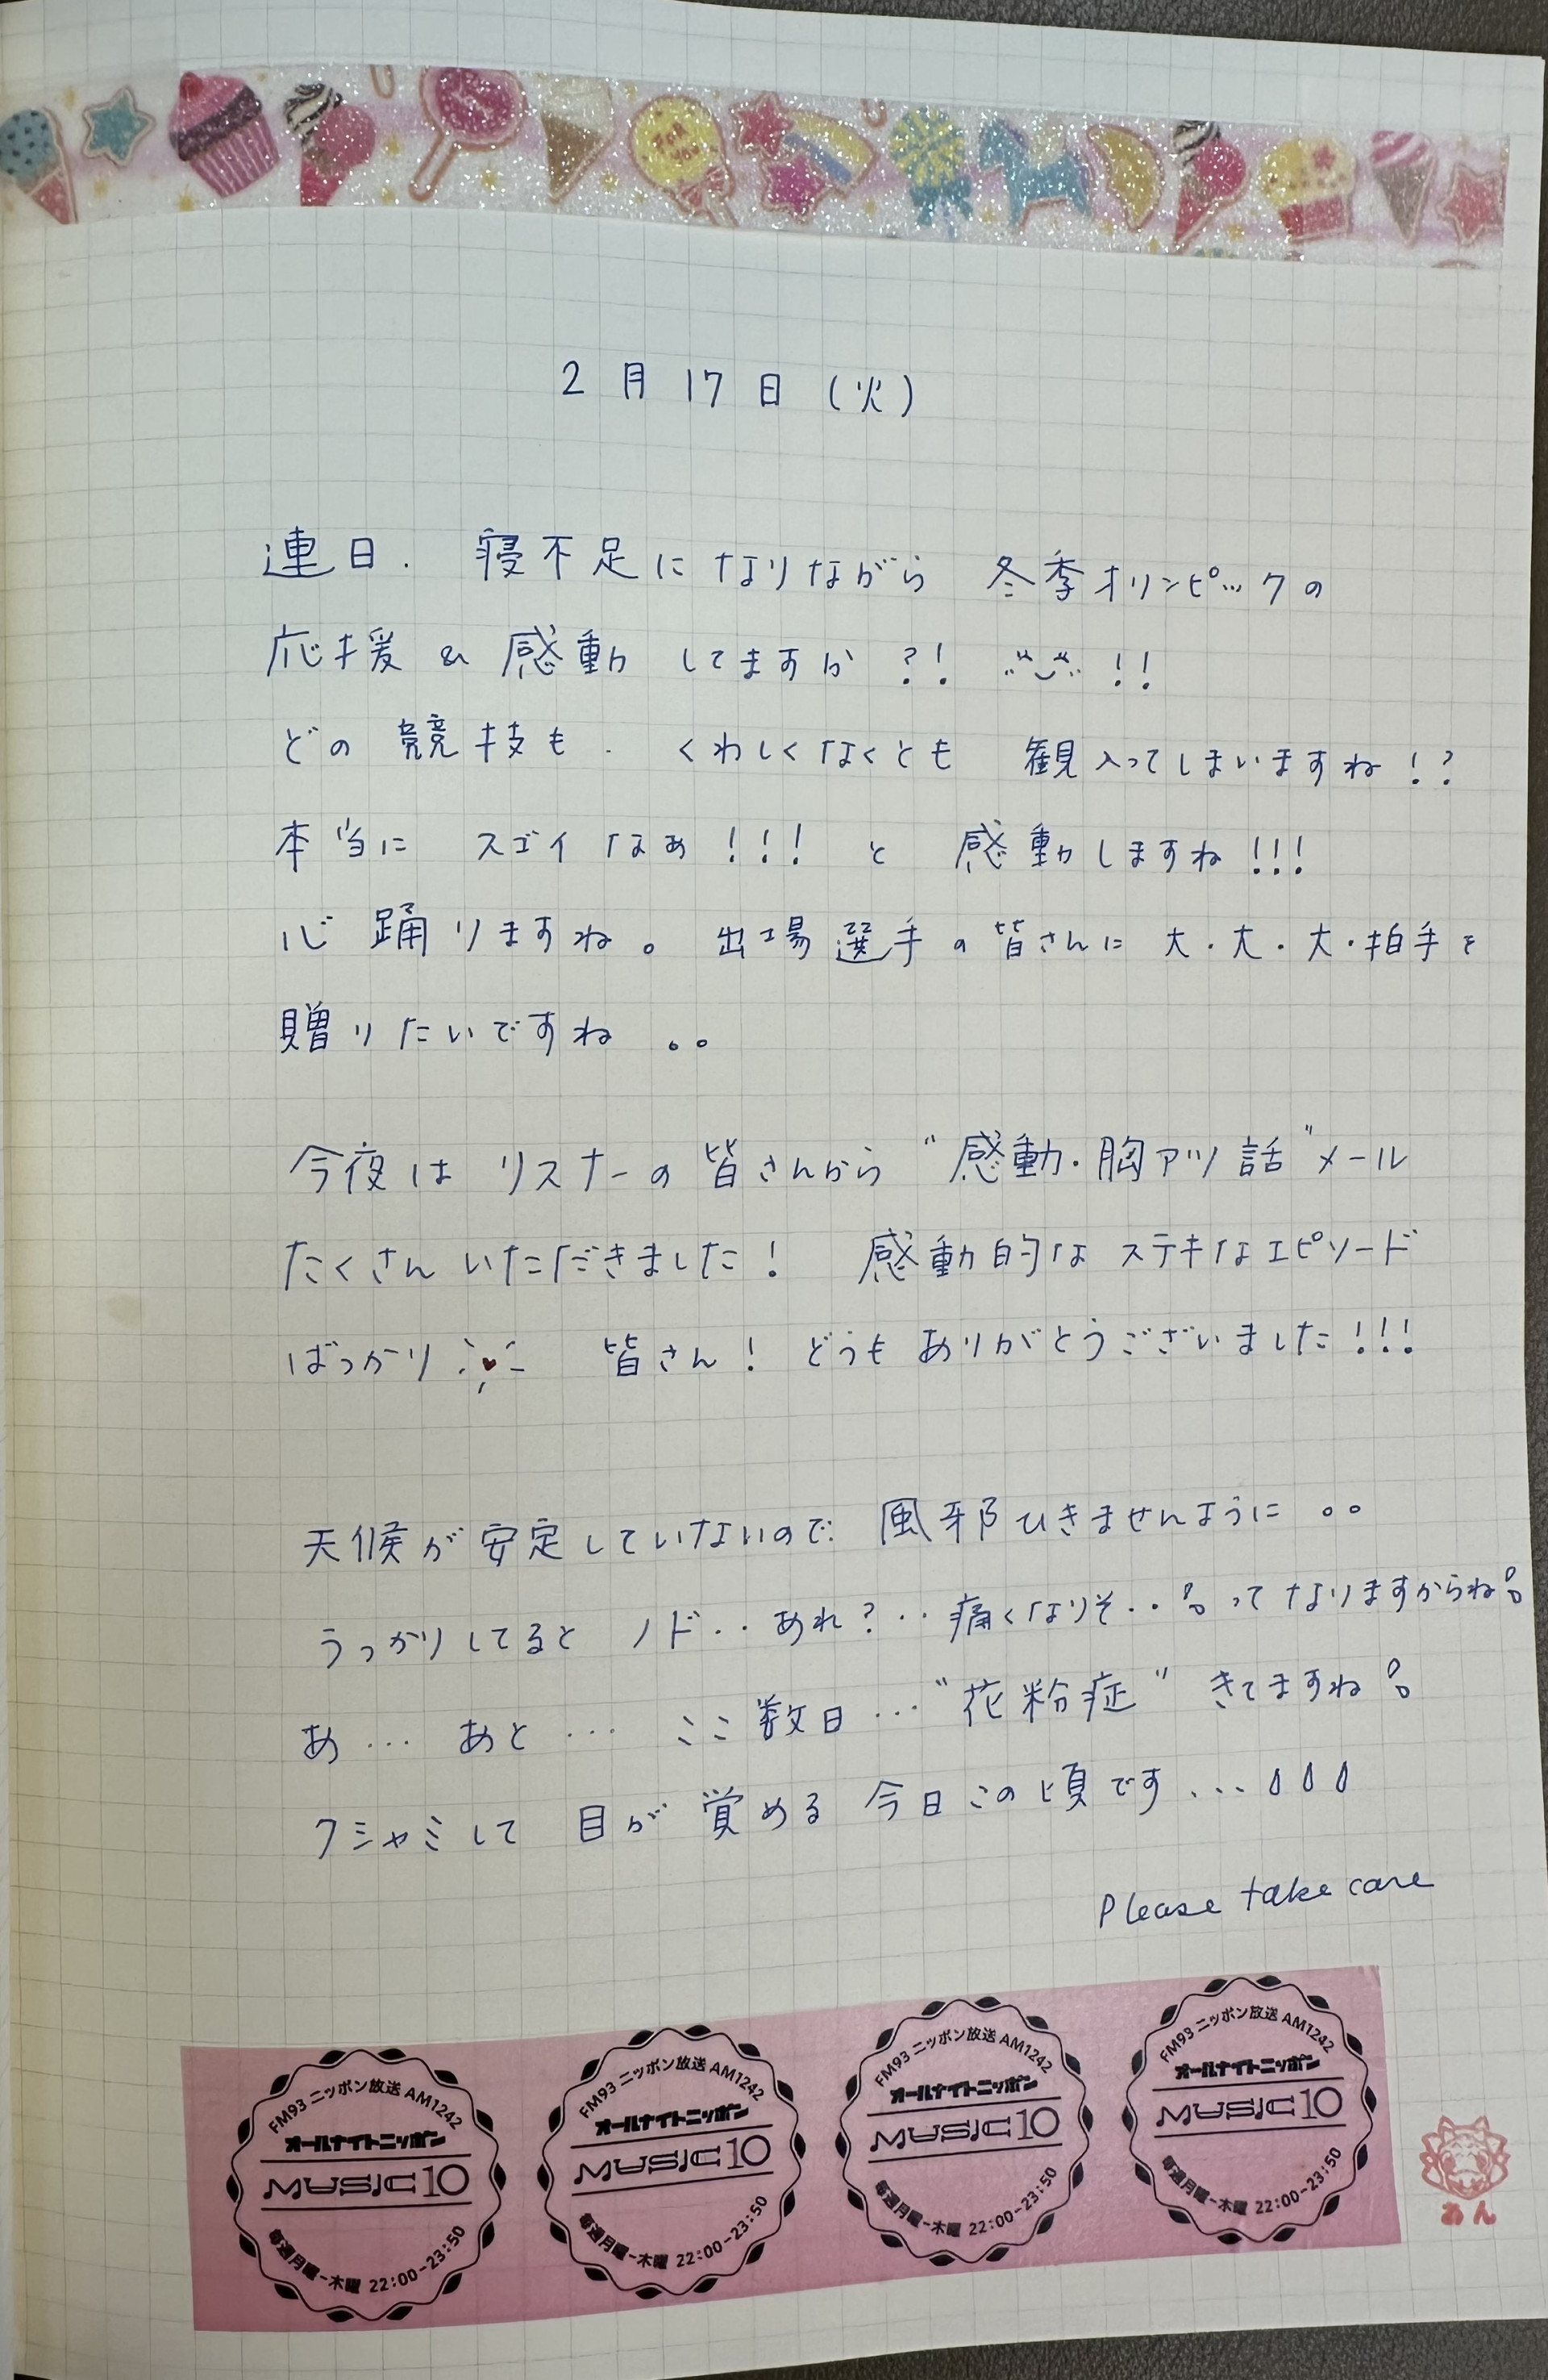 FOR YOU
2月17日(火)
連日. 寝不足になりながら 冬季オリンピックの
応援 & 感動 してますか?! !!
どの競技も. くわしくなくとも 観入ってしまいますね!?
本当に スゴイなぁ!!! と 感動しますね!!!
心踊りますね。出場選手の皆さんに 大・大・大・拍手を
贈りたいですね 。。
今夜は リスナーの皆さんから “感動・胸アツ話”メール
たくさん いただきました! 感動的な ステキなエピソード
ばっかり 皆さん! どうも ありがとうございました!!!
天候が安定していないので. 風邪ひきませんように 。。
うっかりしてると ノド‥あれ?‥痛くなりそ‥って なりますからね
あ… あと… ここ数日…“花粉症” きてますね
クシャミして 目が覚める 今日この頃です…
Please take care
FM93 ニッポン放送 AM1242
オールナイトニッポン
MUSIC10
毎週月曜-木曜 22:00-23:50
FM93 ニッポン放送 AM1242
オールナイトニッポン
MUSIC10
毎週月曜-木曜 22:00-23:50
FM93 ニッポン放送 AM1242
オールナイトニッポン
MUSIC10
毎週月曜-木曜 22:00-23:50
FM93 ニッポン放送 AM1242
オールナイトニッポン
MUSIC10
毎週月曜-木曜 22:00-23:50